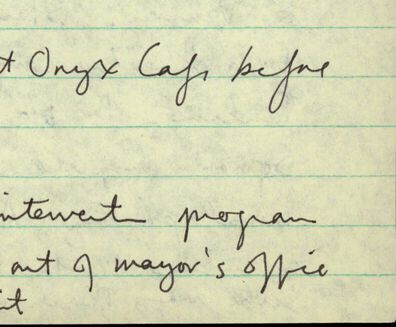 t Onyx Cafe before
intervention program
out of mayor's office
it